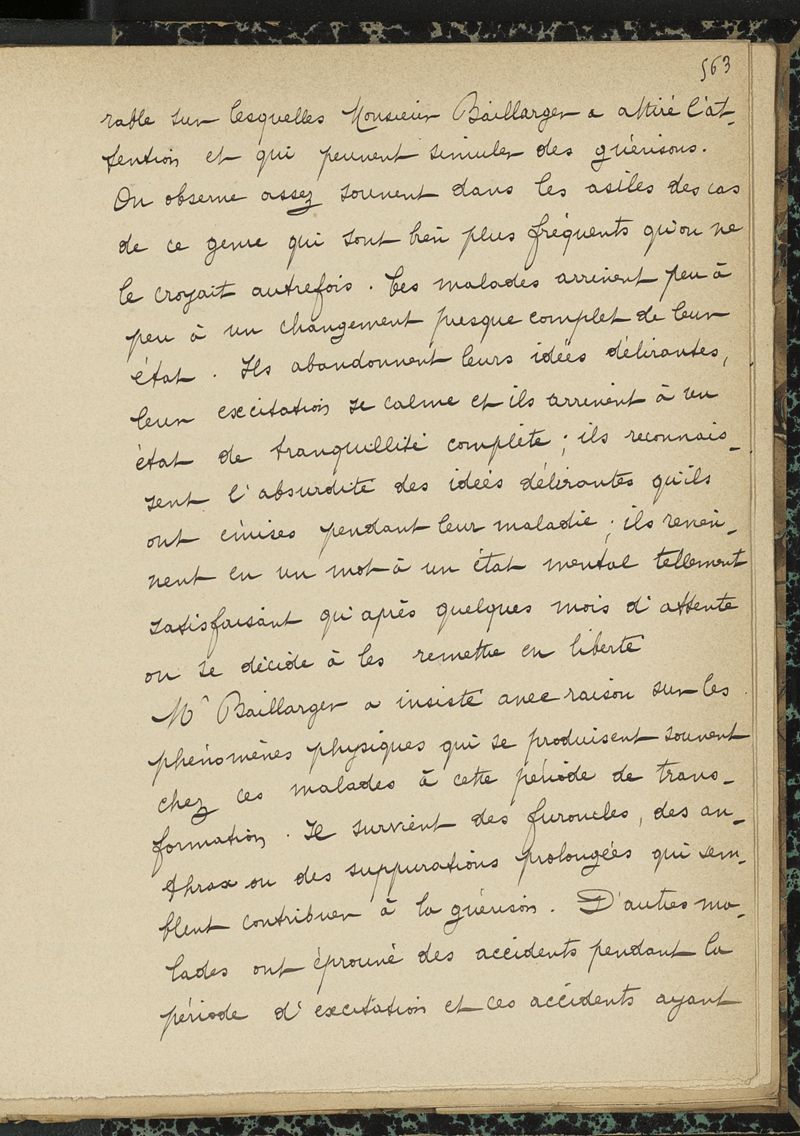 563
rable sur lesquelles Monsieur Baillarger a attiré l'at-
tention et qui peuvent simuler des guérisons.
On observe assez souvent dans les asiles des cas
de ce genre qui sont bien plus fréquents qu'on ne
le croyait autrefois. Ces malades arrivent peu à
peu à un changement presque complet de leur
état. Ils abandonnent leurs idées délirantes,
leur excitation se calme et ils arrivent à un
état de tranquillité complète; ils reconnais-
sent l'absurdité des idées délirantes qu'ils
ont émises pendant leur maladie; ils revien-
nent en un mot à un état mental tellement
satisfaisant qu'après quelques mois d'attente
on se décide à les remettre en liberté
Mr Baillarger a insisté avec raison sur les
phénomènes physiques qui se produisent souvent
chez ces malades à cette période de trans-
formation. Il survient des furoncles, des an-
thrax ou des suppurations prolongées qui sem-
blent contribuer à la guérison. D'autres ma-
lades ont éprouvé des accidents pendant la
période d'excitation et ces accidents ayant